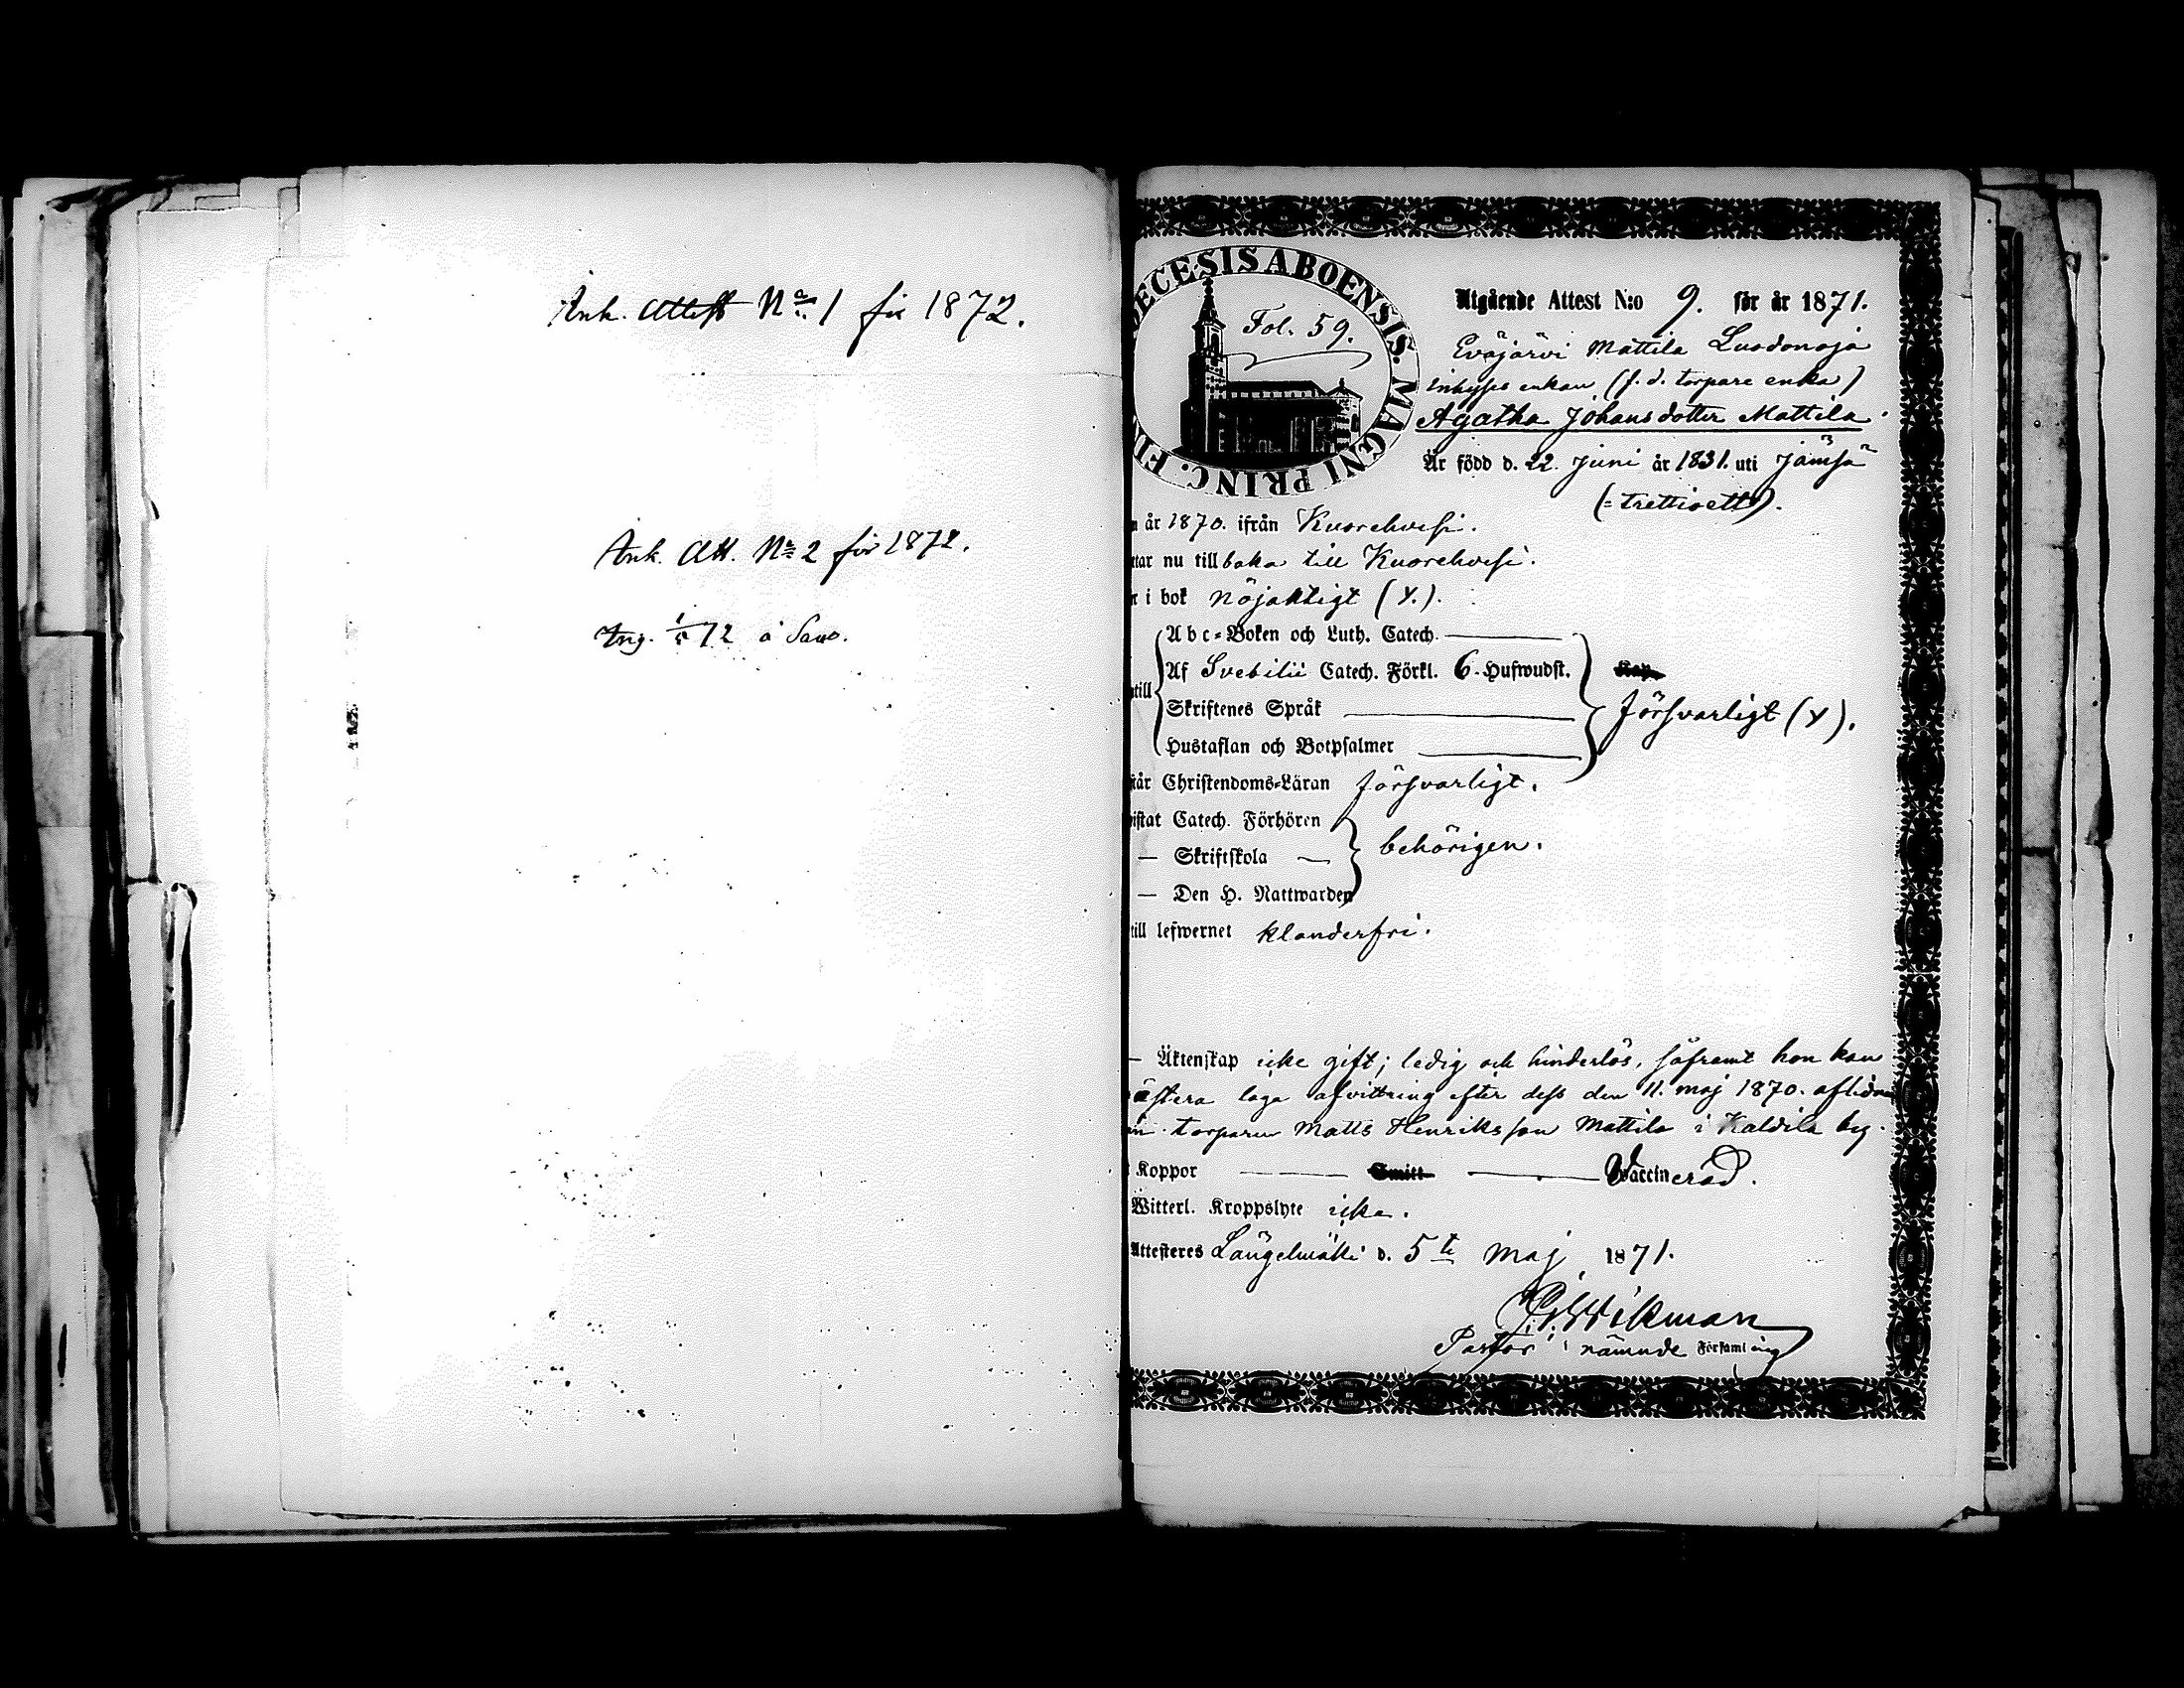 Ank. Attest No 1 för 1872.
Ank. Att. No 2 för 1872.
Ing. 1/5 72 a Savo.
ECESIS ABOENSIS. MAGNI PRINC. FI
Fol. 59.
Utgående Attest N:o 9. för år 1871.
Eväjärvi Mattila
inhyses enkan (f. d. torpare enka)
Agatha Johansdotter Mattila.
Är född d. 22. Juni år 1831. uti Jämsä
(= trettioett).
n år 1870. ifrån Kuorehvesi.
ttar nu tillbaka till Kuorehvesi.
r i bok nöjaktigt (Y.).
Abc-Boken och Luth. Catech.
ntill Af Svebilii Catech. Förkl. 6 Hufwudst.
Skriftenes Språk
försvarligt (Y).
Hustaflan och Botpsalmer
står Christendoms-Läran försvarligt.
istat Catech. Förhören
— Skriftskola — behörigen.
— Den H. Nattwarden
till lefwernet klanderfri.
— Äktenskap icke gift; ledig och hinderlös, såframt hon kan
laga afvittring efter dess den 11. maj 1870. aflidne
torparen Matts Henriksson Mattila i Kaldila by.
Koppor Smitt Vaccinerad.
Witterl. Kroppslyte icke.
Attesteres Längelmäki d. 5te Maj 1871.
Wikman
Pastor i nämnde Församling